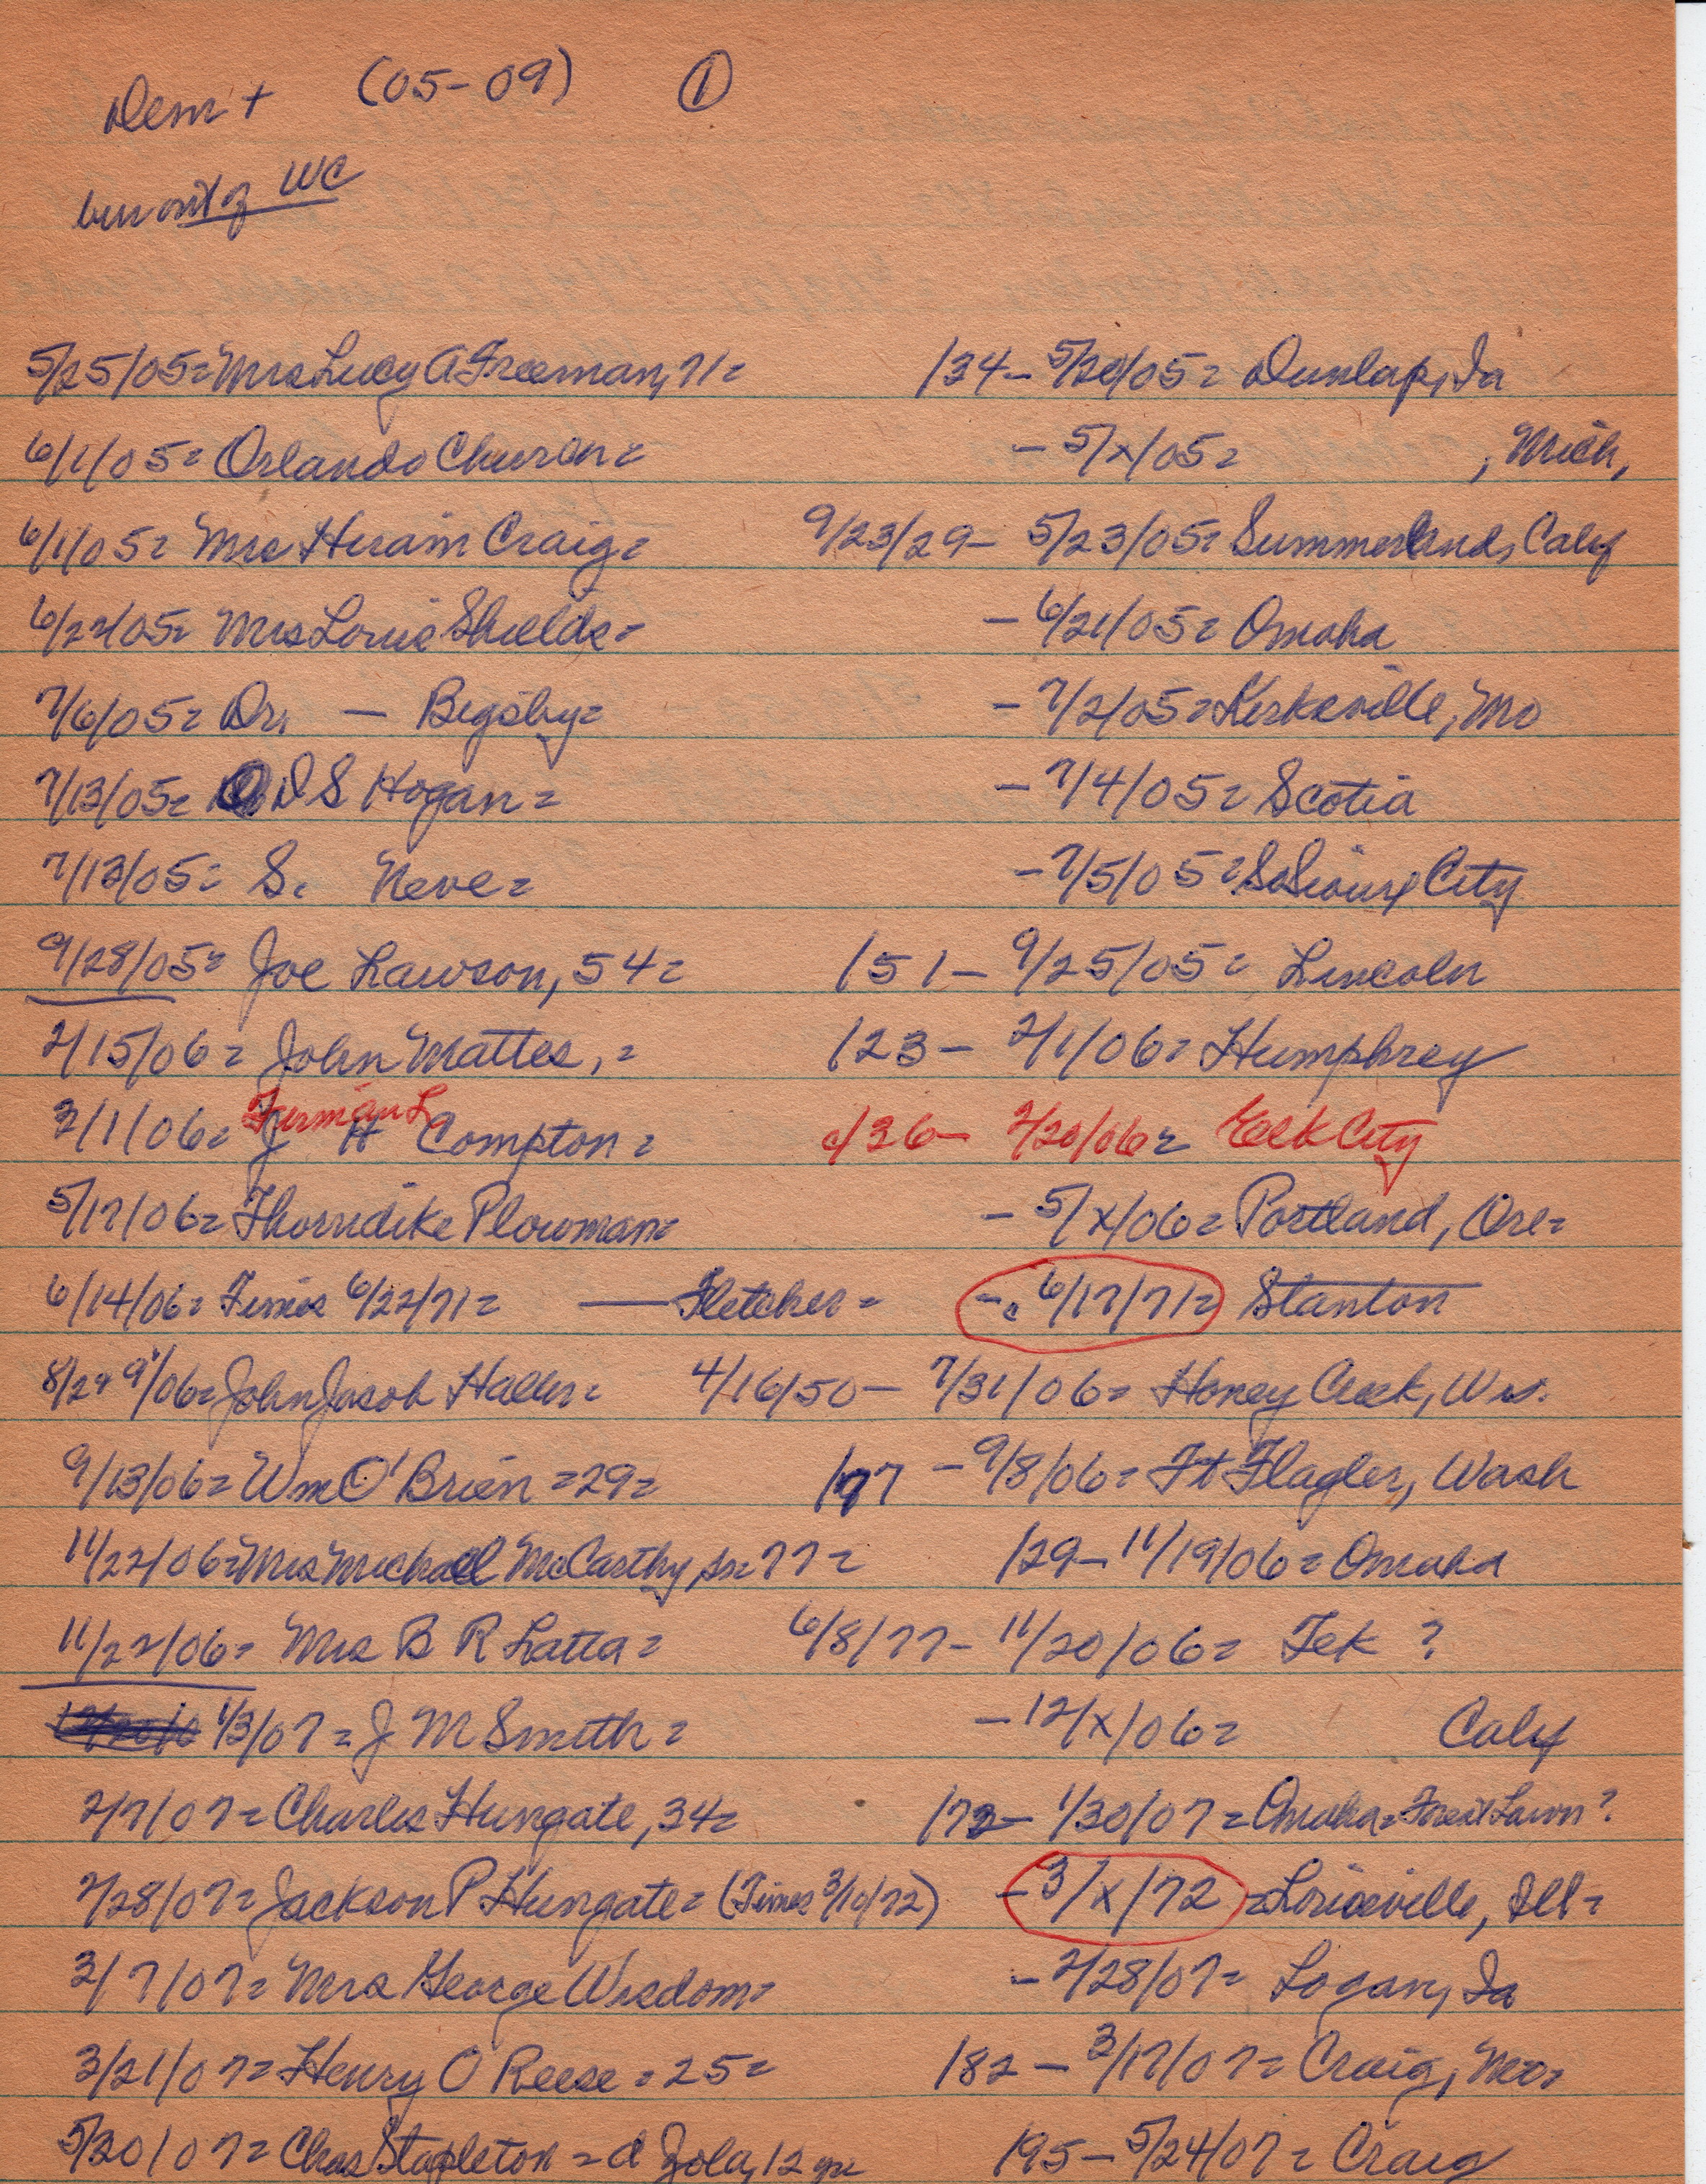 Dem + (05-09) ①
bur out of WC
5/25/05= Mrs Lucy A Freeman, 71= /34- 5/20/05= Dunlap, Ia
6/1/05= Orlando - 5/x/05= , Mich,
6/1/05= Mrs Hiram Craig= 9/23/29- 5/23/05= Summerland, Calif
6/22/05= Mrs Louie Shields= - 6/21/05= Omaha
7/6/05= Dr. — Bigsby= - 7/2/05= Kirksville, Mo
7/13/05= D S Hogan= - 7/4/05= Scotia
7/13/05= S. Neve= - 7/5/05= So Sioux City
9/28/05= Joe Lawson, 54= /51- 9/25/05= Lincoln
2/15/06= John Mattes, = /23- 2/1/06= Humphrey
Furman L
3/1/06= J H Compton= c/36- 2/20/06= Elk City
5/17/06= Thorndike Plowman= - 5/x/06= Portland, Ore=
6/14/06= Times 6/22/71= — Fletcher= -c 6/17/71= Stanton
8/2+9/06= John Jacob Haller= 4/16/50- 7/31/06= Honey Creek, Wis.
9/13/06= Wm O'Brien =29= /77 - 9/8/06= Ft Flagler, Wash
11/22/06= Mrs Michael McCarthy, sr= 77= /29- 11/19/06= Omaha
11/22/06= Mrs B R Latta= 6/8/77- 11/20/06= Tek ?
1/3/07= J M Smith= - 12/x/06= Calif
2/7/07= Charles Hungate, 34= /72- 1/30/07= Omaha= Forest Lawn?
2/28/07= Jackson P Hungate= (Times 3/10/72) - 3/x/72 = Louisville, Ill=
3/7/07= Mrs George Wisdom= - 2/28/07= Logan, Ia
3/21/07= Henry O Reese= 25= /82- 3/17/07= Craig, Mo=
5/30/07= Chas Stapleton= d Zola, 12 yrs /95- 5/24/07= Craig